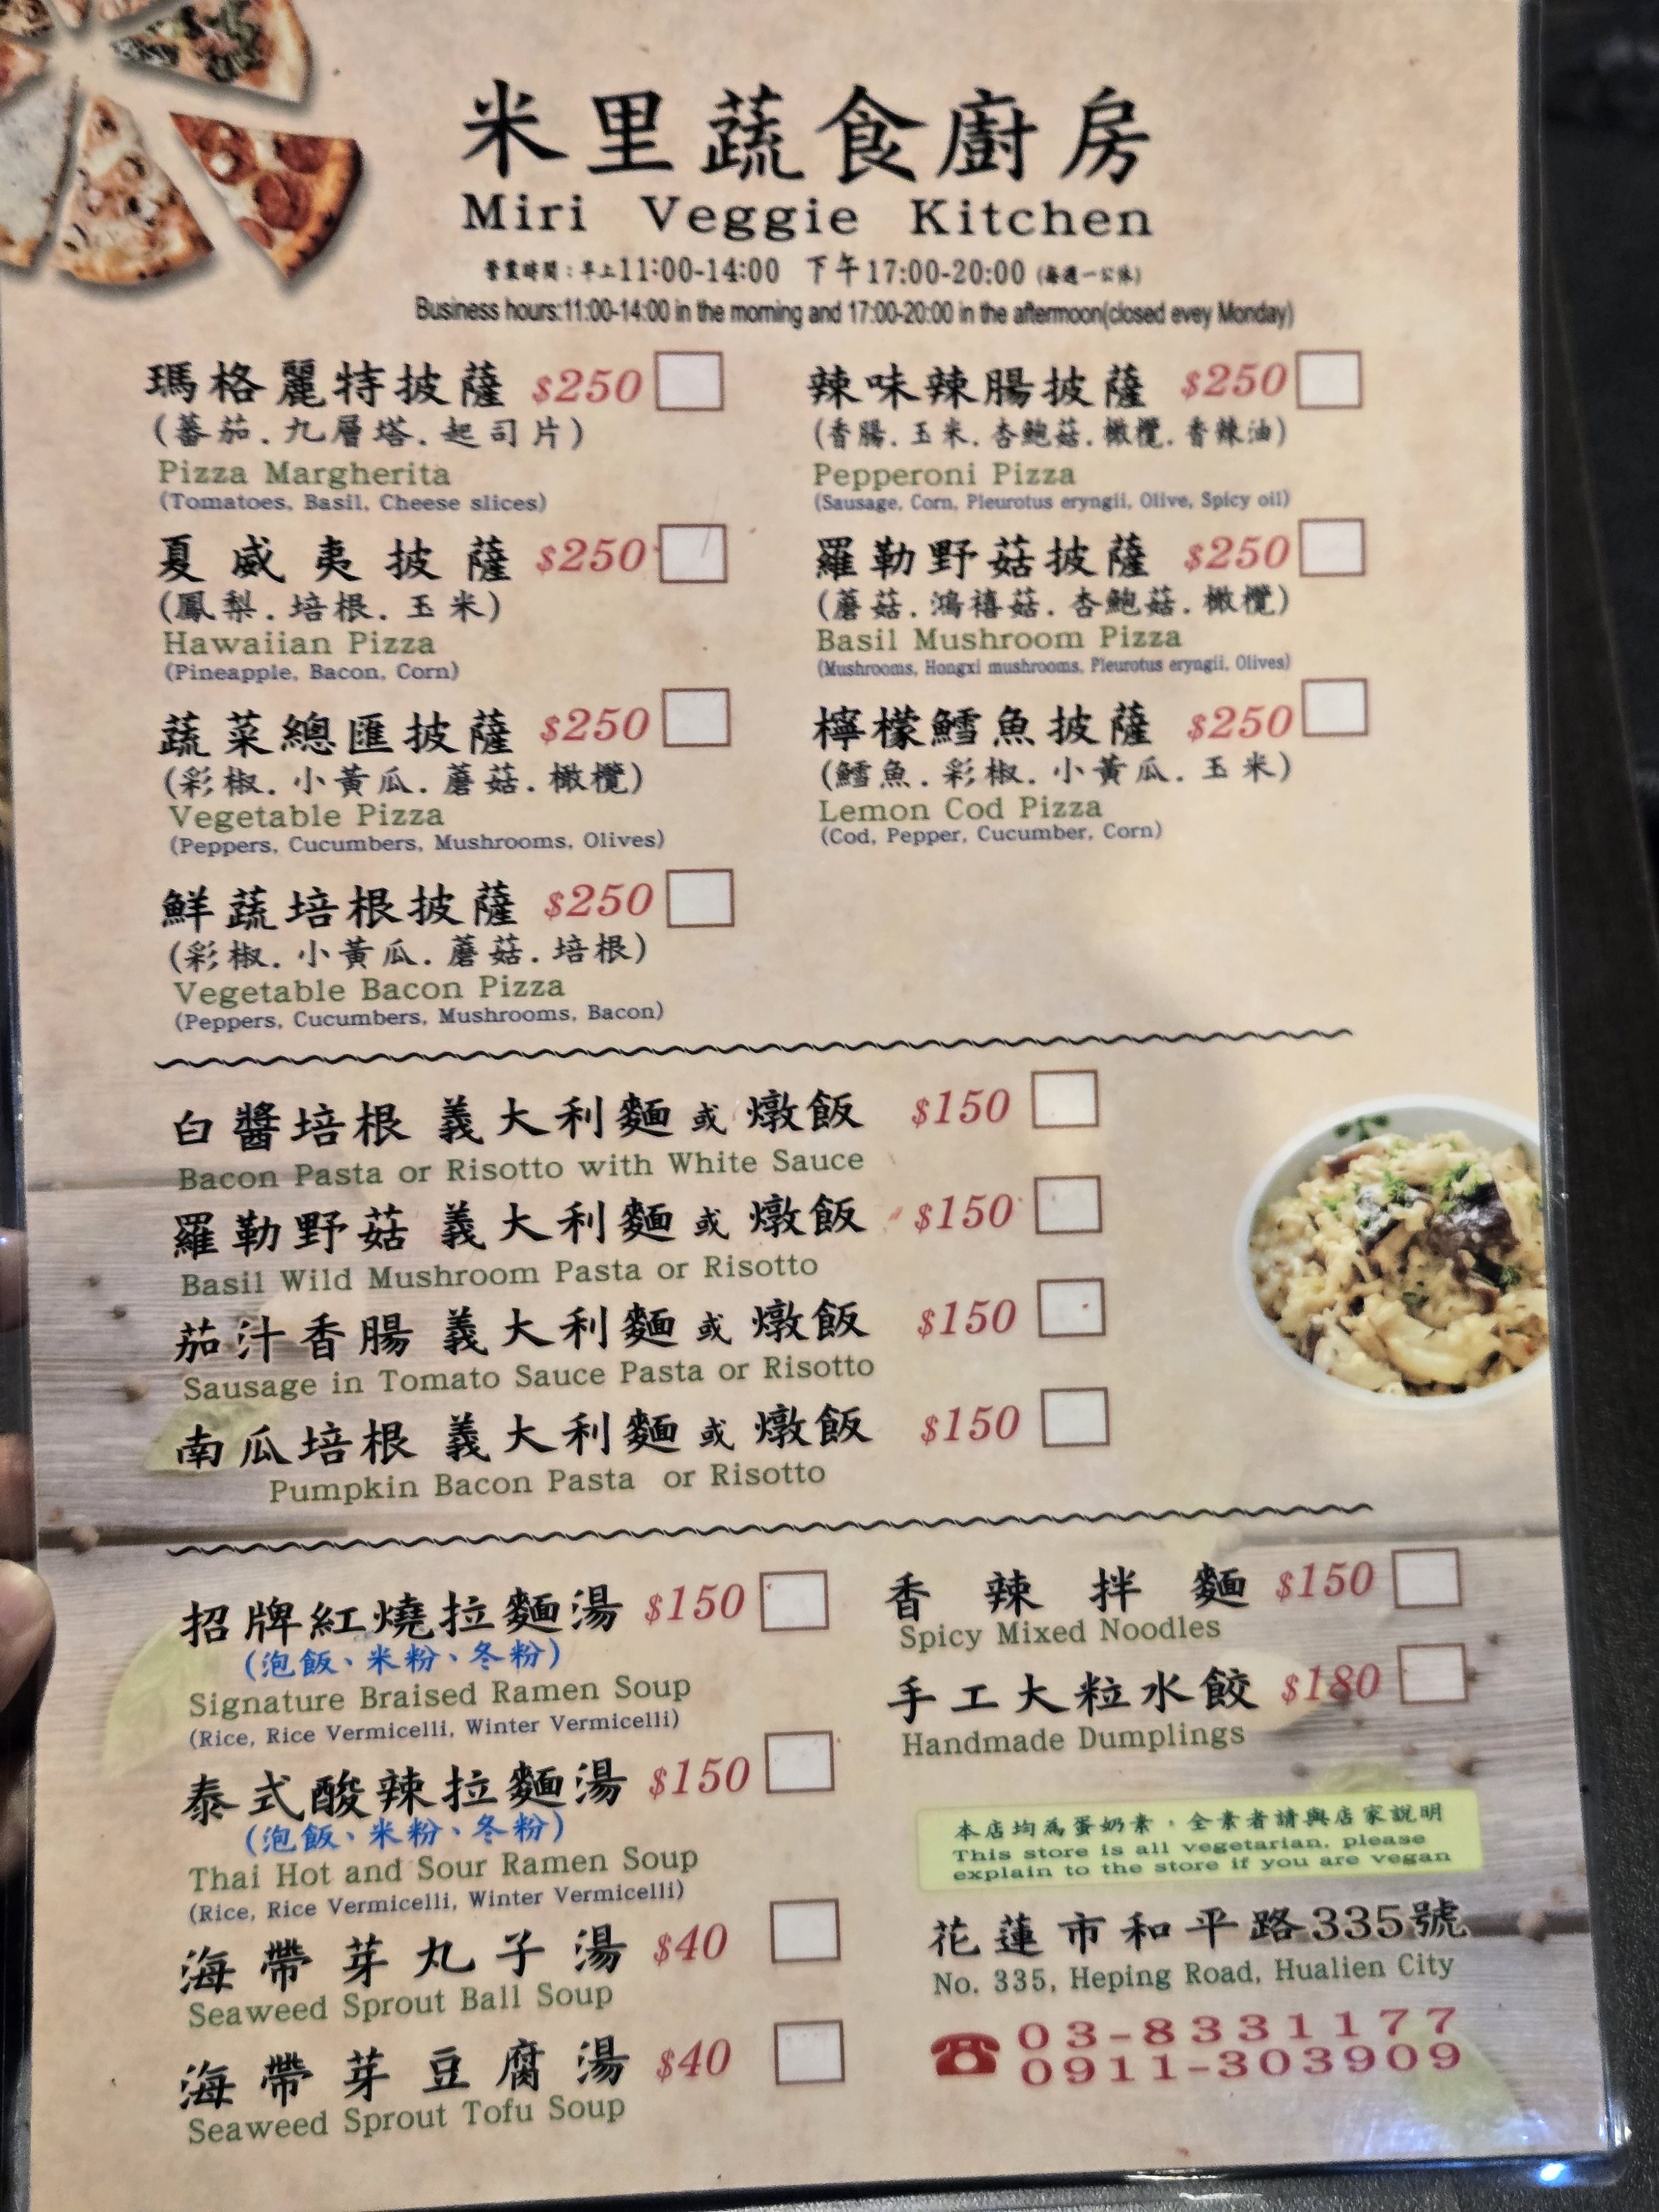 米里蔬食廚房
Miri Veggie Kitchen
營業時間：早上11:00-14:00 下午17:00-20:00 (每週一公休)
Business hours:11:00-14:00 in the morning and 17:00-20:00 in the afternoon(closed evey Monday)
瑪格麗特披薩 $250
(蕃茄.九層塔.起司片)
Pizza Margherita
(Tomatoes, Basil, Cheese slices)
夏威夷披薩 $250
(鳳梨.培根.玉米)
Hawaiian Pizza
(Pineapple, Bacon, Corn)
蔬菜總匯披薩 $250
(彩椒.小黃瓜.蘑菇.橄欖)
Vegetable Pizza
(Peppers, Cucumbers, Mushrooms, Olives)
鮮蔬培根披薩 $250
(彩椒.小黃瓜.蘑菇.培根)
Vegetable Bacon Pizza
(Peppers, Cucumbers, Mushrooms, Bacon)
辣味辣腸披薩 $250
(香腸.玉米.杏鮑菇.橄欖.香辣油)
Pepperoni Pizza
(Sausage, Corn, Pleurotus eryngii, Olive, Spicy oil)
羅勒野菇披薩 $250
(蘑菇.鴻禧菇.杏鮑菇.橄欖)
Basil Mushroom Pizza
(Mushrooms, Hongxi mushrooms, Pleurotus eryngii, Olives)
檸檬鱈魚披薩 $250
(鱈魚.彩椒.小黃瓜.玉米)
Lemon Cod Pizza
(Cod, Pepper, Cucumber, Corn)
白醬培根 義大利麵或燉飯 $150
Bacon Pasta or Risotto with White Sauce
羅勒野菇 義大利麵或燉飯 $150
Basil Wild Mushroom Pasta or Risotto
茄汁香腸 義大利麵或燉飯 $150
Sausage in Tomato Sauce Pasta or Risotto
南瓜培根 義大利麵或燉飯 $150
Pumpkin Bacon Pasta or Risotto
招牌紅燒拉麵湯 $150
(泡飯、米粉、冬粉)
Signature Braised Ramen Soup
(Rice, Rice Vermicelli, Winter Vermicelli)
泰式酸辣拉麵湯 $150
(泡飯、米粉、冬粉)
Thai Hot and Sour Ramen Soup
(Rice, Rice Vermicelli, Winter Vermicelli)
海帶芽丸子湯 $40
Seaweed Sprout Ball Soup
海帶芽豆腐湯 $40
Seaweed Sprout Tofu Soup
香辣拌麵 $150
Spicy Mixed Noodles
手工大粒水餃 $180
Handmade Dumplings
本店均為蛋奶素，全素者請與店家說明
This store is all vegetarian. please
explain to the store if you are vegan
花蓮市和平路335號
No. 335, Heping Road, Hualien City
03-8331177
0911-303909